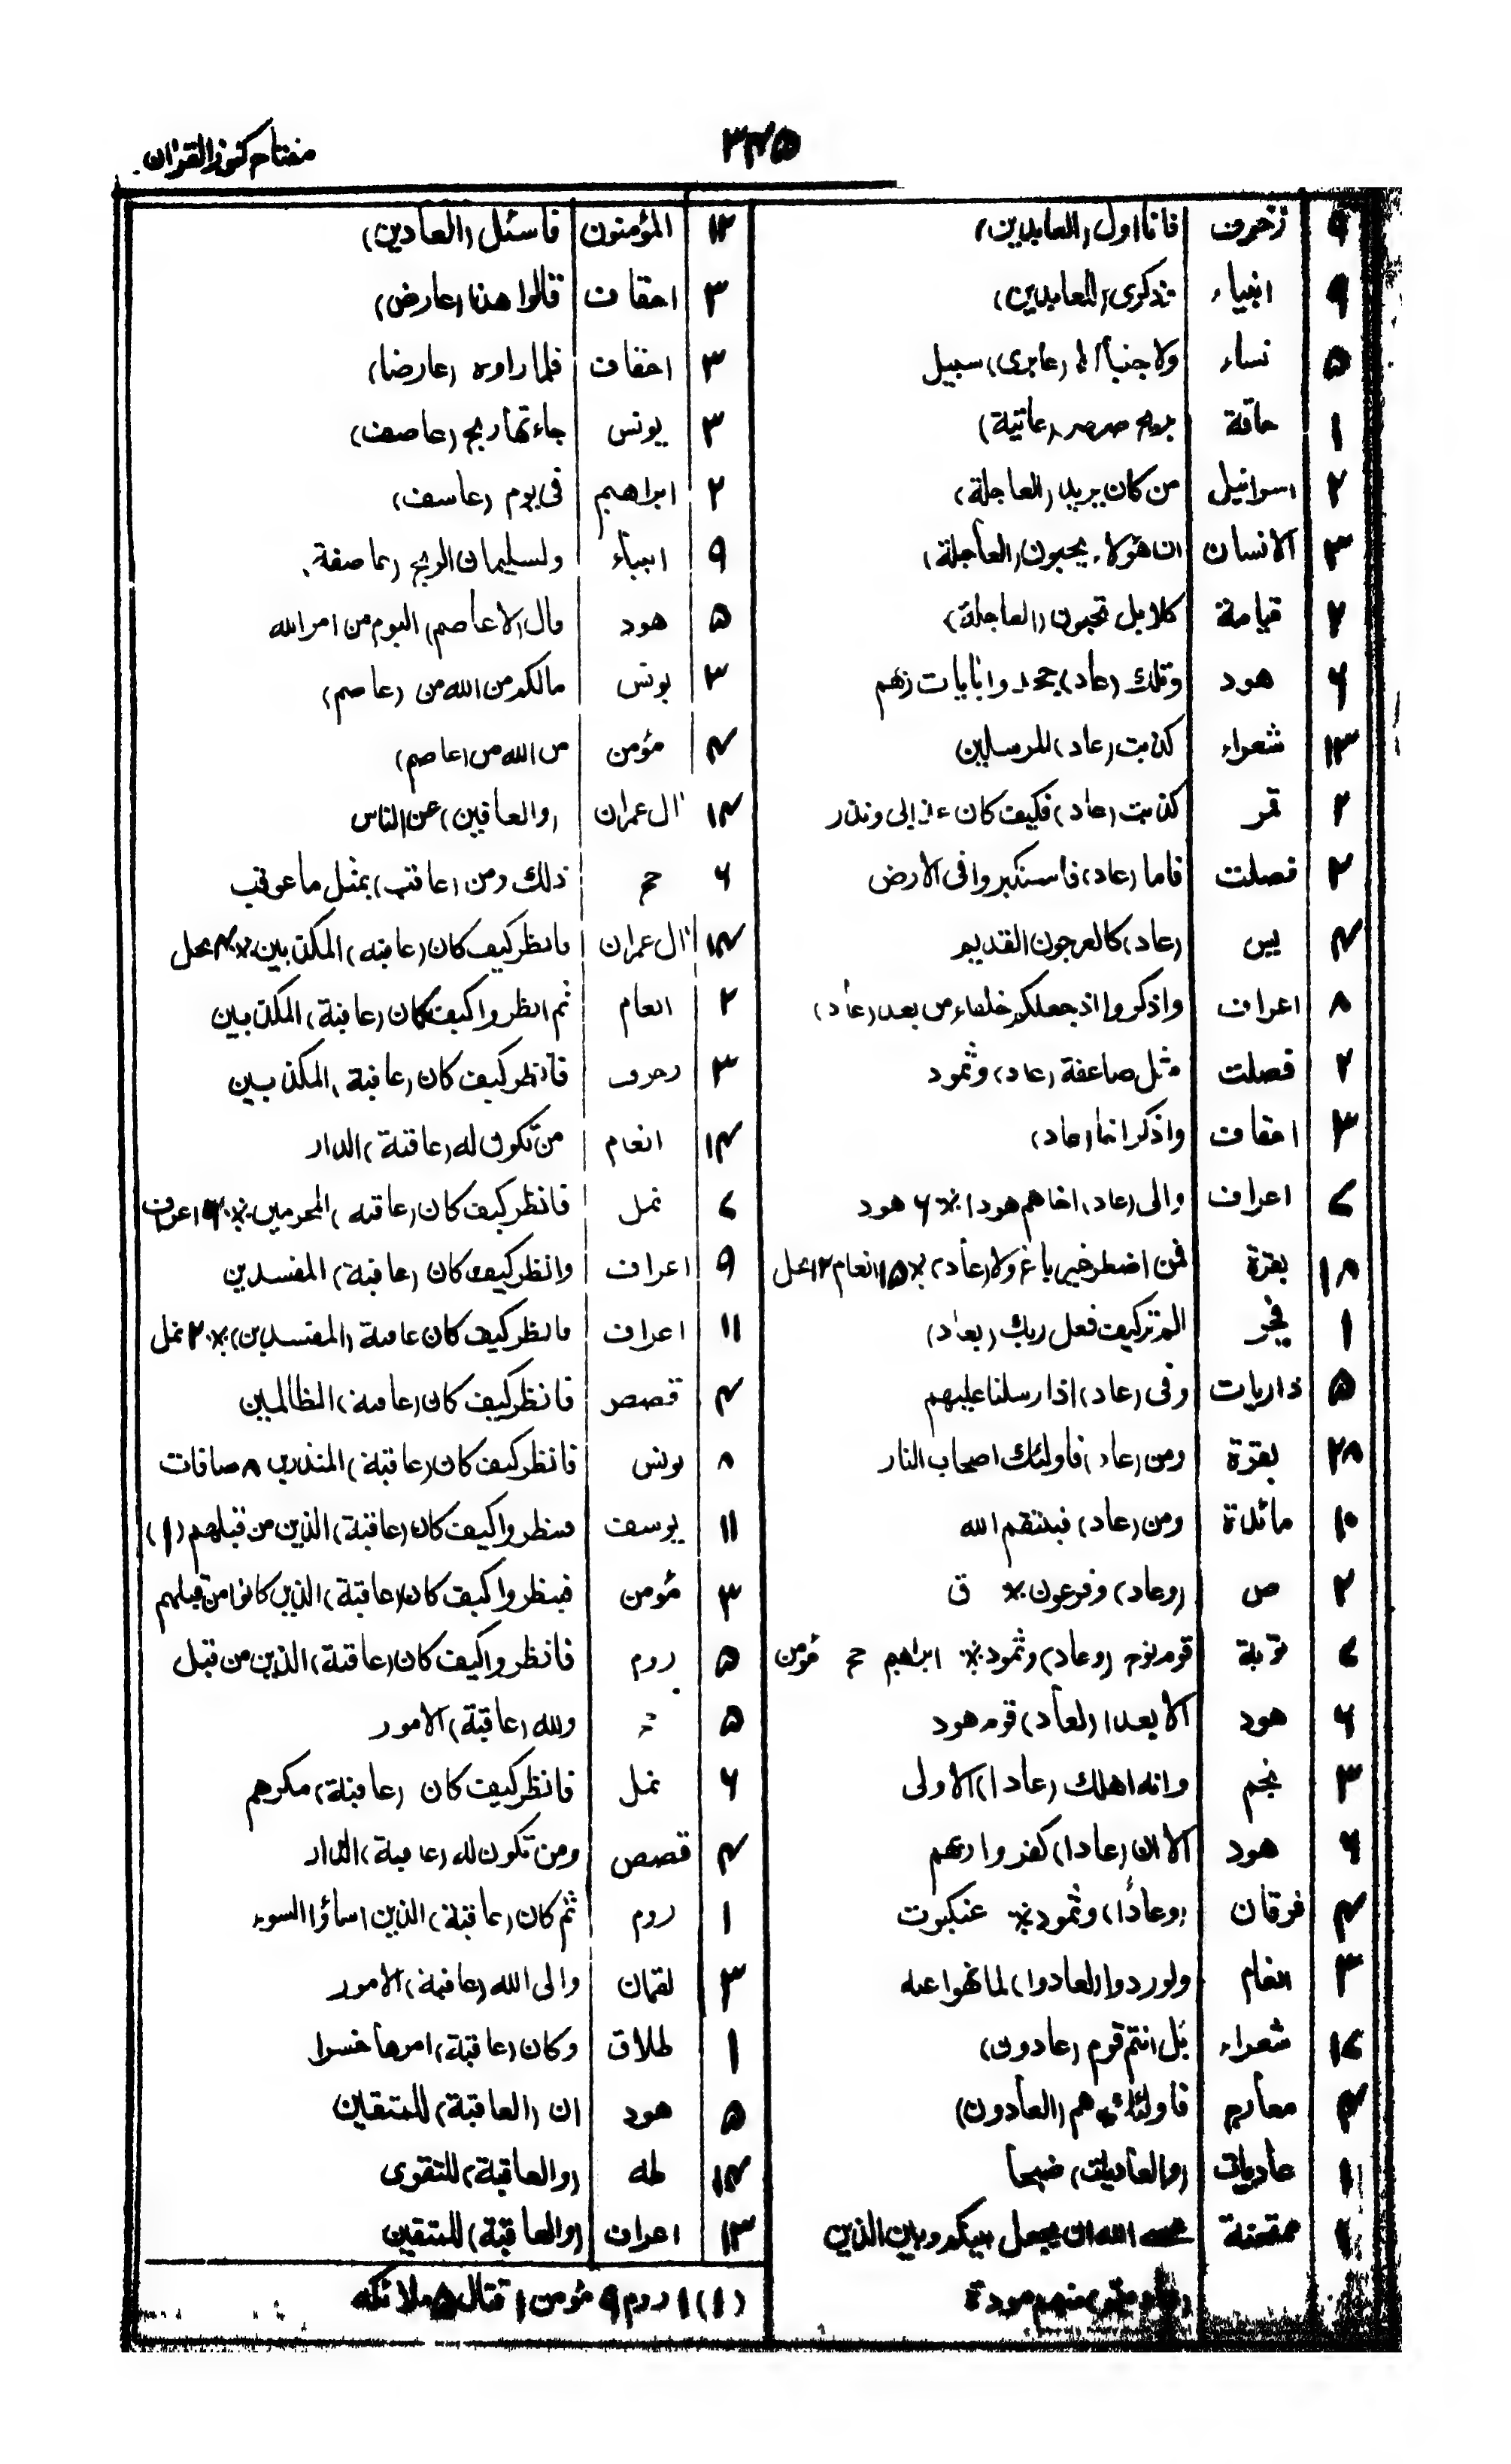 ۳۴۵
مفتاح کنوز القرآن
۹ زخرف فانا اول (العابدین)
۹ انبیاء تذکری (للعابدین)
۵ نساء ولا جنبا الا (عابری) سبیل
۱ حاقة بریح صرصر (عاتیة)
۲ اسرائیل من کان یرید (العاجلة)
۳ الانسان ان هؤلاء یحبون (العاجلة)
۲ قیامة کلا بل تحبون (العاجلة)
۶ هود وتلک (عاد) جحدوا بایات ربهم
۱۳ شعراء کذبت (عاد) المرسلین
۲ قمر کذبت (عاد) فکیف کان عذابی ونذر
۲ فصلت فاما (عاد) فاستکبروا فی الارض
۴ یس (عاد) کالعرجون القدیم
۸ اعراف واذکروا اذ جعلکم خلفاء من بعد (عاد)
۲ فصلت مثل صاعقة (عاد) وثمود
۳ احقاف واذکر اخا (عاد)
۷ اعراف والی (عاد) اخاهم هودا ※ ۶ هود
۱۸ بقرة فمن اضطر غیر باغ ولا (عاد) ※ ۱۵ انعام ۱۲ نحل
۱ فجر الم ترکیف فعل ربک (بعاد)
۵ ذاریات وفی (عاد) اذ ارسلنا علیهم
۲۸ بقرة ومن (عاد) فاولئک اصحاب النار
۱۰ مائدة ومن (عاد) فینتقم الله
۲ ص (وعاد) وفرعون ※ ق
۷ توبة قوم نوح (وعاد) وثمود ※ ابراهیم حج مؤمن
۶ هود الا بعدا (لعاد) قوم هود
۳ نجم وانه اهلک (عادا) الاولی
۶ هود الا ان (عادا) کفروا ربهم
۴ فرقان (وعادًا) وثمود ※ عنکبوت
۳ انعام ولوردوا (لعادوا) لما نهوا عنه
۱۷ شعراء بل انتم قوم (عادون)
۴ معارج فاولئک هم (العادون)
۱ عادیات (والعادیات) ضبحا
ممتحنة الله ان یجعل بینکم وبین الذین
منهم مودة
۱۲ المؤمنون فاسئل (العادین)
۳ احقاف قالوا هذا (عارض)
۳ احقاف فلما راوه (عارضا)
۳ یونس جاءتها ریح (عاصف)
۲ ابراهیم فی یوم (عاصف)
۹ انبیاء ولسلیمان الریح (عاصفة)
۵ هود قال (لا عاصم) الیوم من امر الله
۳ یونس مالکم من الله من (عاصم)
۴ مؤمن من الله من (عاصم)
۱۴ ال عمران (والعافین) عن الناس
۶ حج ذلک ومن (عاقب) بمثل ما عوقب
۱۴ ال عمران فانظر کیف کان (عاقبة) المکذبین ※ ۴ نحل
۲ انعام ثم انظروا کیف کان (عاقبة) المکذبین
۳ زخرف فانظر کیف کان (عاقبة) المکذبین
۱۴ انعام من تکون له (عاقبة) الدار
۷ نمل فانظر کیف کان (عاقبة) المجرمین ※ ۹ اعراف
۹ اعراف وانظر کیف کان (عاقبة) المفسدین
۱۱ اعراف فانظر کیف کان عاقبة (المفسدین) ※ ۲ نمل
۴ قصص فانظر کیف کان (عاقبة) الظالمین
۸ یونس فانظر کیف کان (عاقبة) المنذرین ۸ صافات
۱۱ یوسف فینظروا کیف کان (عاقبة) الذین من قبلهم (۱)
۳ مؤمن فینظروا کیف کان (عاقبة) الذین کانوا من قبلهم
۵ روم فانظروا کیف کان (عاقبة) الذین من قبل
۵ ولله (عاقبة) الامور
۶ نمل فانظر کیف کان (عاقبة) مکرهم
۴ قصص ومن تکون له (عاقبة) الدار
۱ روم ثم کان (عاقبة) الذین اساؤا السوء
۳ لقمان والی الله (عاقبة) الامور
۱ طلاق وکان (عاقبة) امرها خسرا
۵ هود ان (العاقبة) للمتقین
۱۴ طه (والعاقبة) للتقوی
۱۳ اعراف (والعاقبة) للمتقین
(۱) ۱ روم ۹ مؤمن ۱ قتال ۵ ملائکه